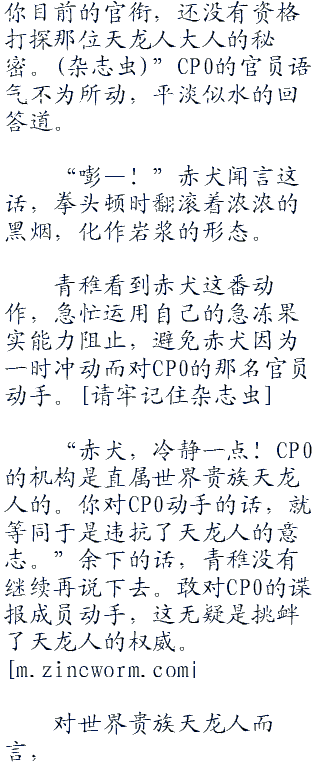 你目前的官衔，还没有资格
打探那位天龙人大人的秘
密。(杂志虫)”CP0的官员语
气不为所动，平淡似水的回
答道。
“嘭—！”赤犬闻言这
话，拳头顿时翻滚着浓浓的
黑烟，化作岩浆的形态。
青稚看到赤犬这番动
作，急忙运用自己的急冻果
实能力阻止，避免赤犬因为
一时冲动而对CP0的那名官员
动手。[请牢记住杂志虫]
“赤犬，冷静一点！CP0
的机构是直属世界贵族天龙
人的。你对CP0动手的话，就
等同于是违抗了天龙人的意
志。”余下的话，青稚没有
继续再说下去。敢对CP0的谍
报成员动手，这无疑是挑衅
了天龙人的权威。
[m.zincworm.com¡
对世界贵族天龙人而
言，